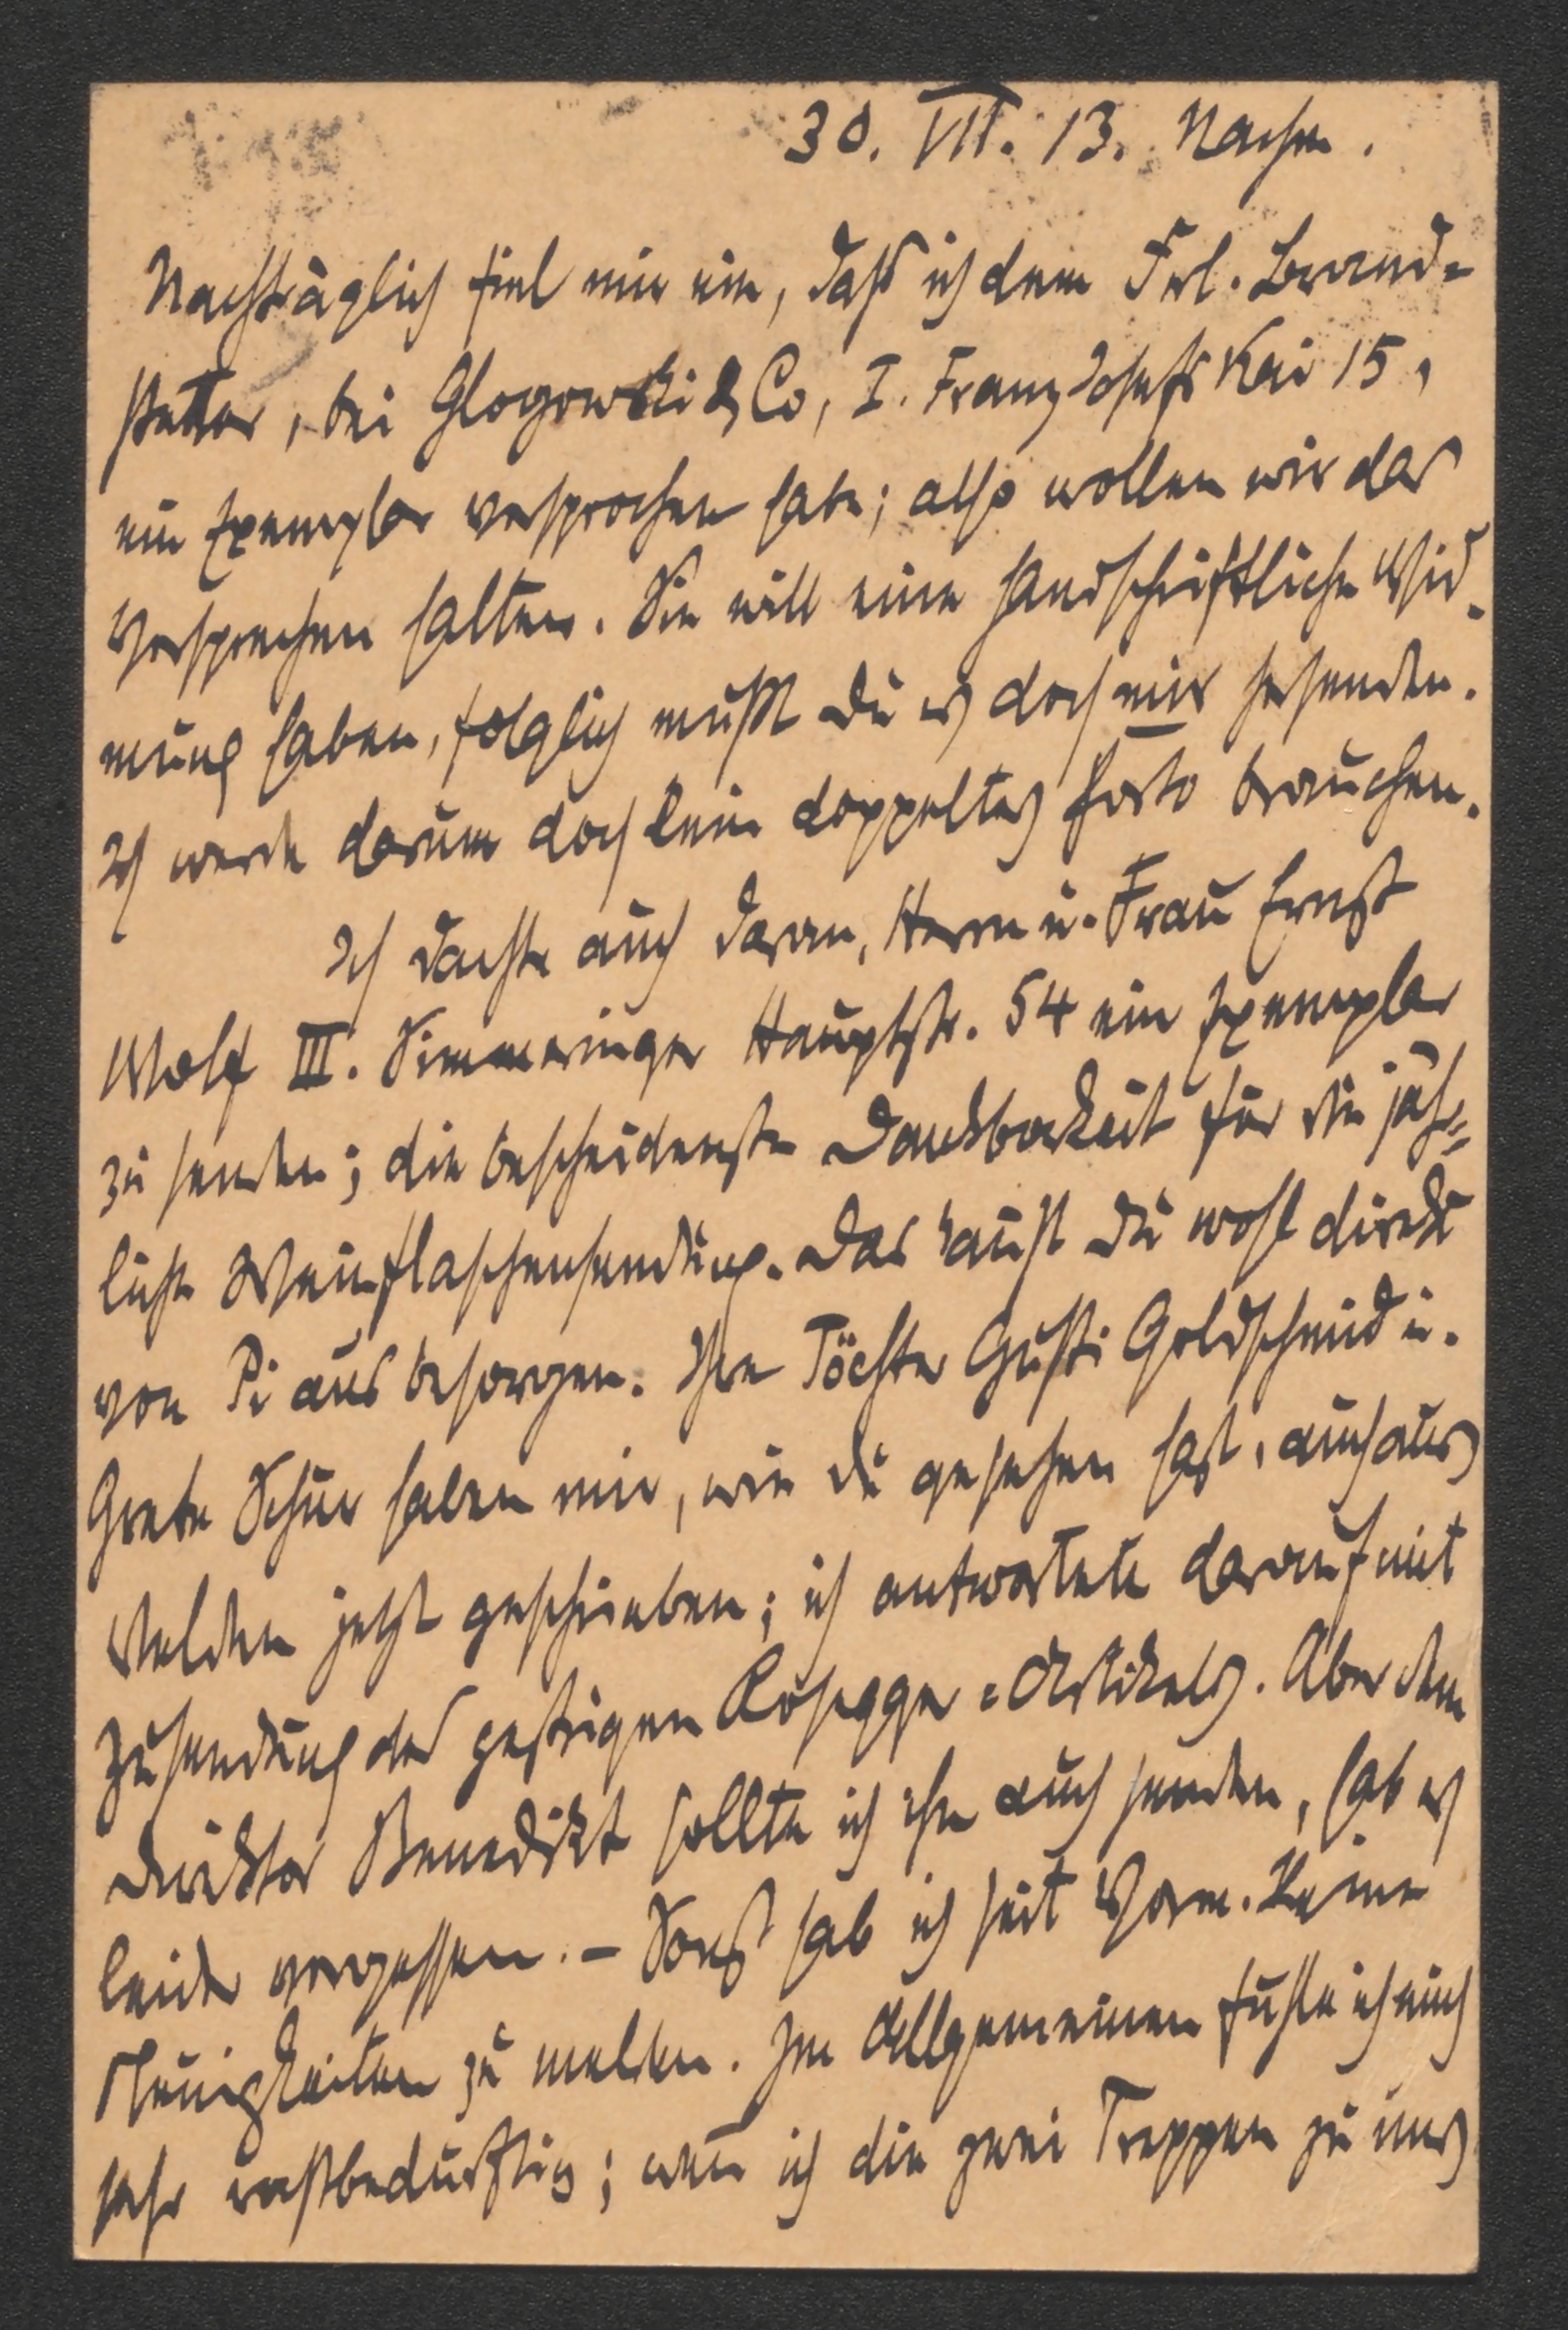 30. VII. 13. Nachm.
Nachträglich fiel mir ein, daß ich dem Frl. Brand-
stetter, bei Glogowski & Co, I. Franz Josefs Kai 15,
ein Exemplar versprochen habe; also wollen wir das
Versprechen halten. Sie will eine handschriftliche Wid-
mung haben, folglich mußt du es doch mir hersenden.
Ich werde darum doch kein doppeltes Porto brauchen.
Ich dachte auch daran, Herrn u. Frau Ernst
Wolf III. Simmeringer Hauptstr. 54 ein Exemplar
zu senden; die bescheidenste Dankbarkeit für die jähr-
liche Weinflaschensendung. Das kannst du wohl direkt
von Pi aus besorgen. Ihre Töchter Gusti Goldschmid u.
Grete Schur haben mir, wie du gesehen hast, auch aus
Velden jetzt geschrieben; ich antwortete darauf mit
Zusendung des gestrigen Rosegger-Artikels. Aber dem
Direktor Benedikt sollte ich ihn auch senden, hab es
leider vergessen. – Sonst hab ich seit Vorm. keine
Neuigkeiten zu melden. Im Allgemeinen fühle ich mich
sehr rastbedürftig; wen̄ ich die zwei Treppen zu uns